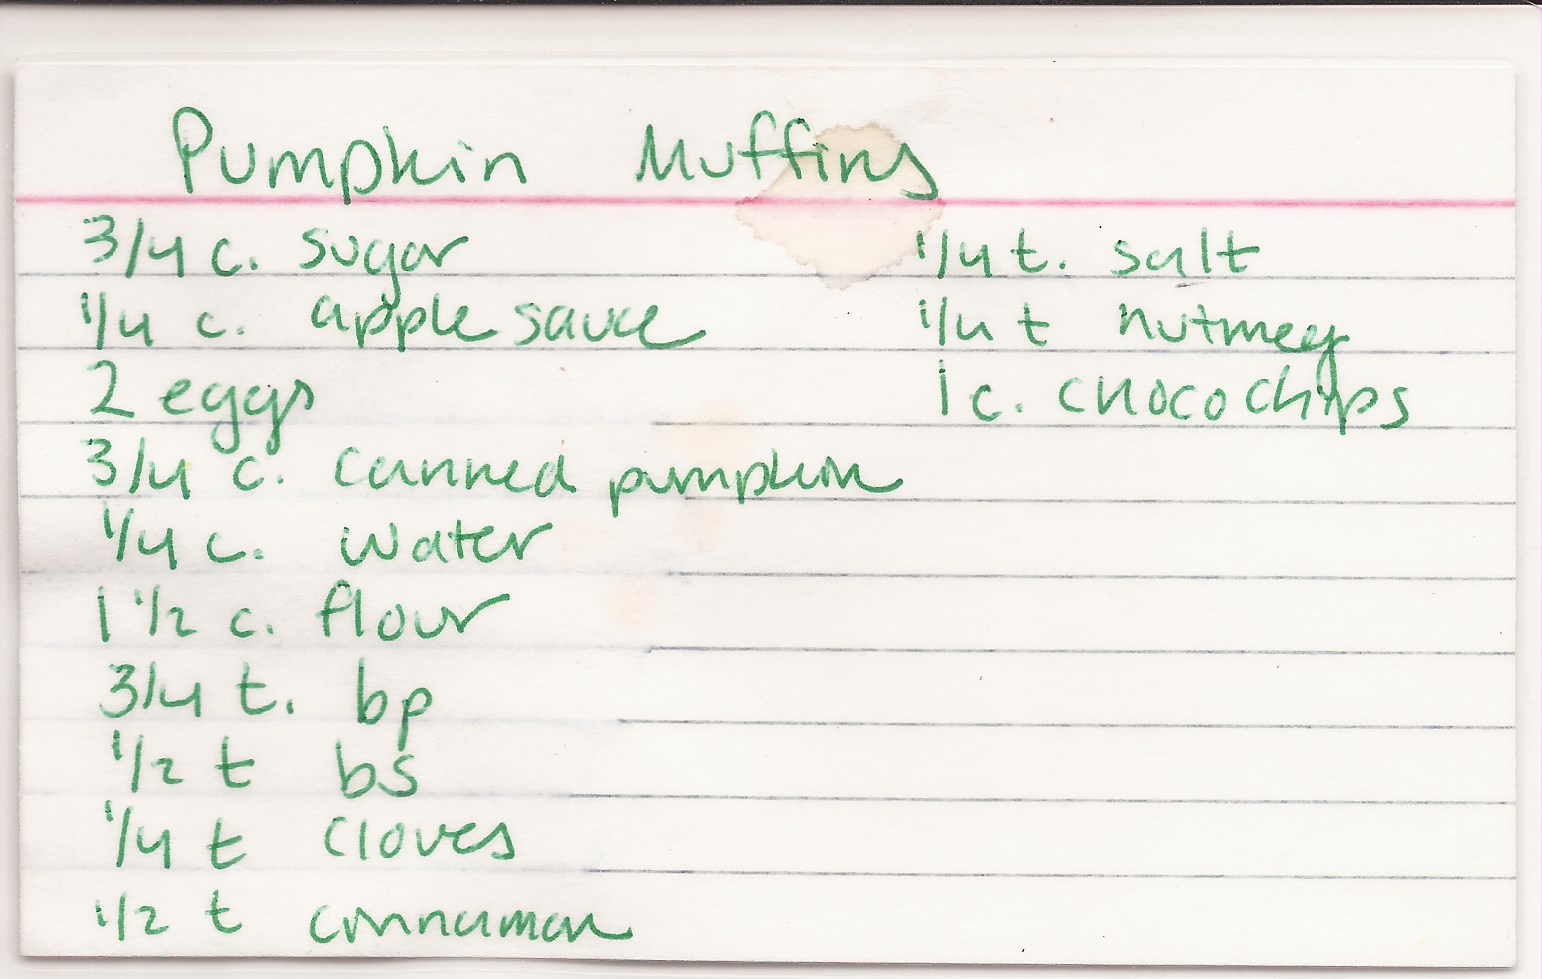 Pumpkin Muffins
3/4 c. sugar
1/4 c. applesauce
2 eggs
3/4 c. canned pumpkin
1/4 c. water
1 1/2 c. flour
3/4 t. bp
1/2 t bs
1/4 t cloves
1/2 t cinnamon
1/4 t. salt
1/4 t nutmeg
1 c. choco chips